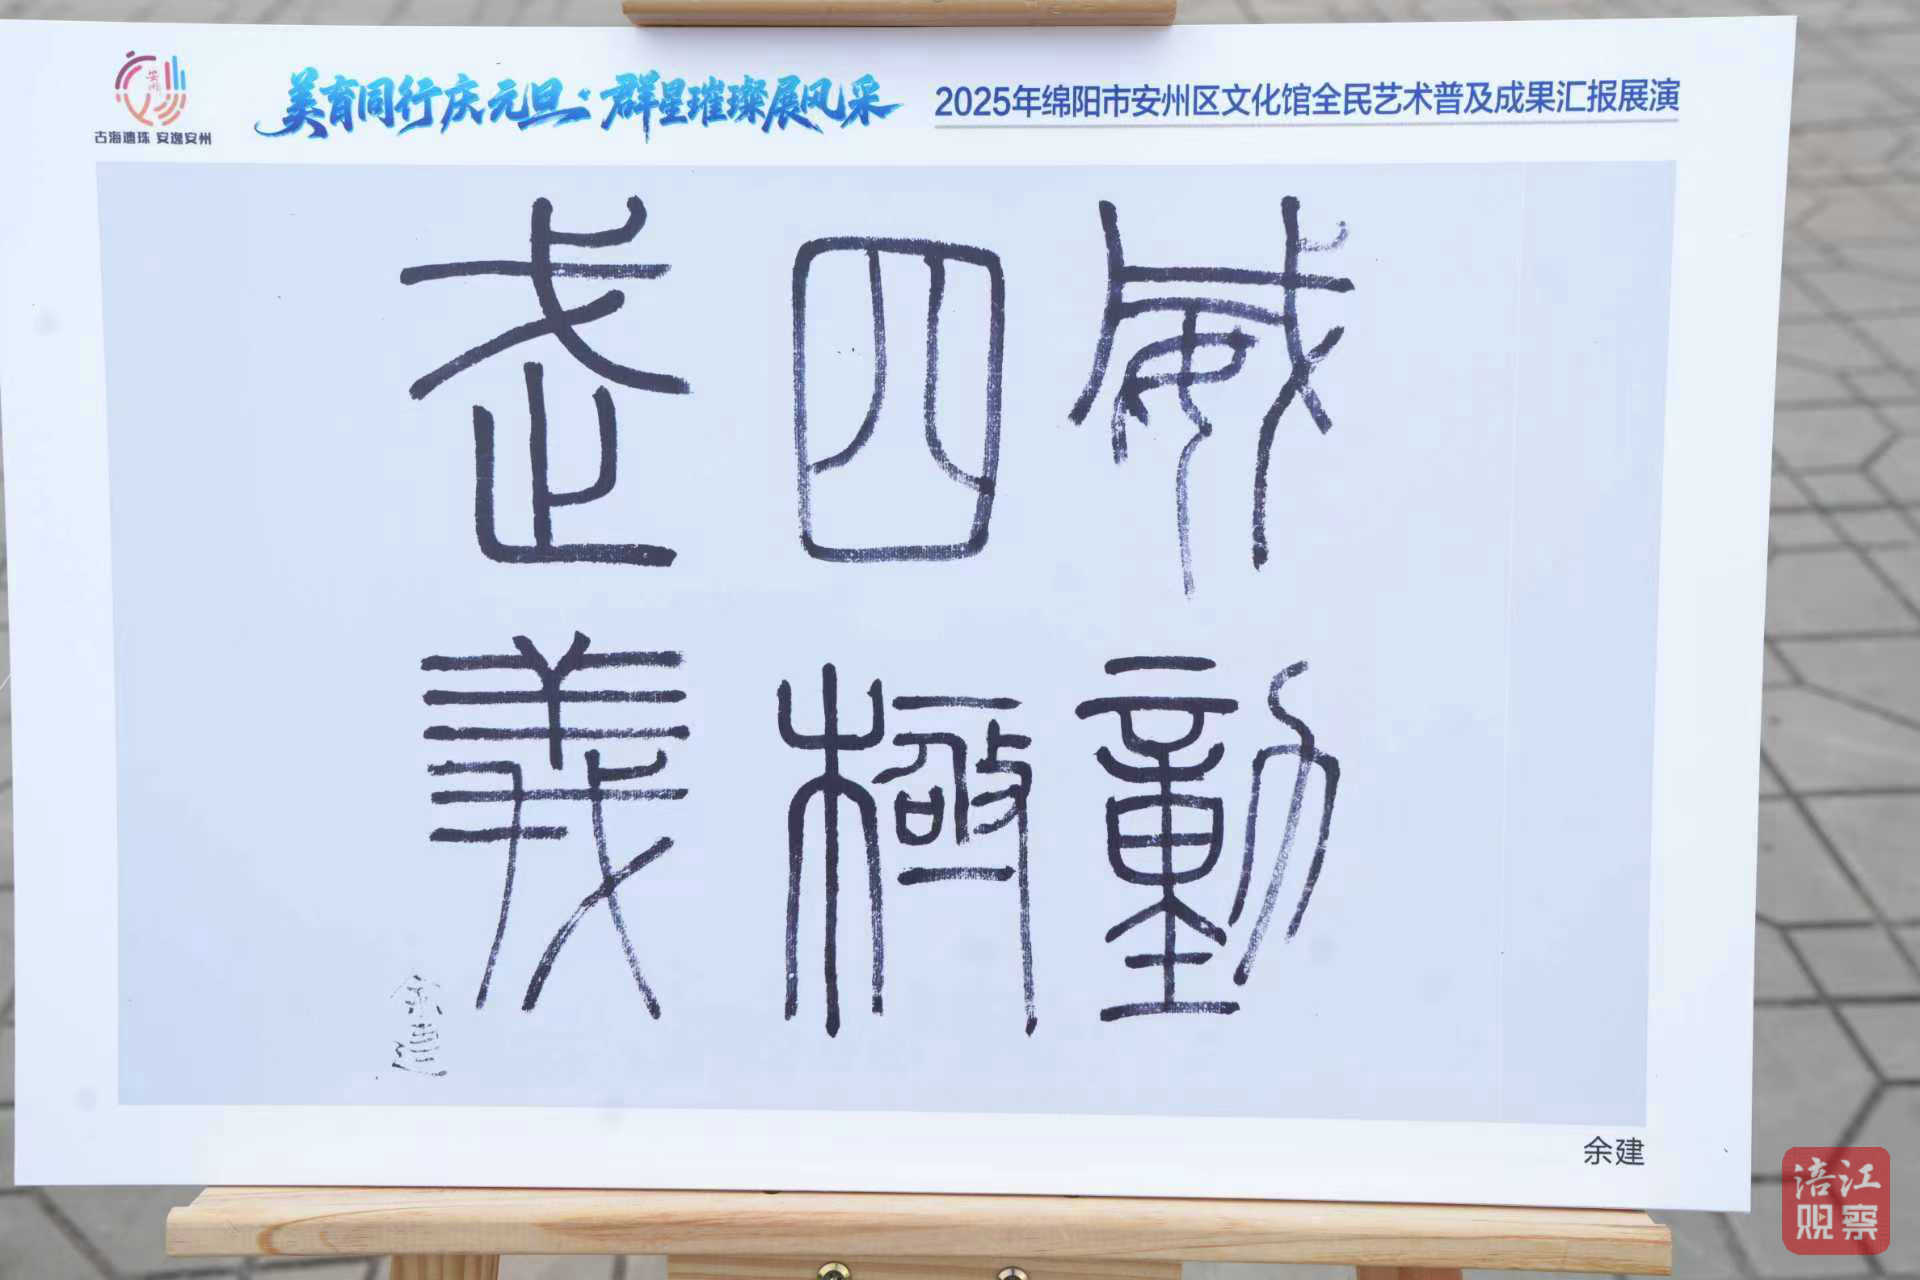 古海遗珠 安逸安州
美育同行庆元旦·群星璀璨展风采
2025年绵阳市安州区文化馆全民艺术普及成果汇报展演
威動
四極
武義
余建
余建
涪江
观察